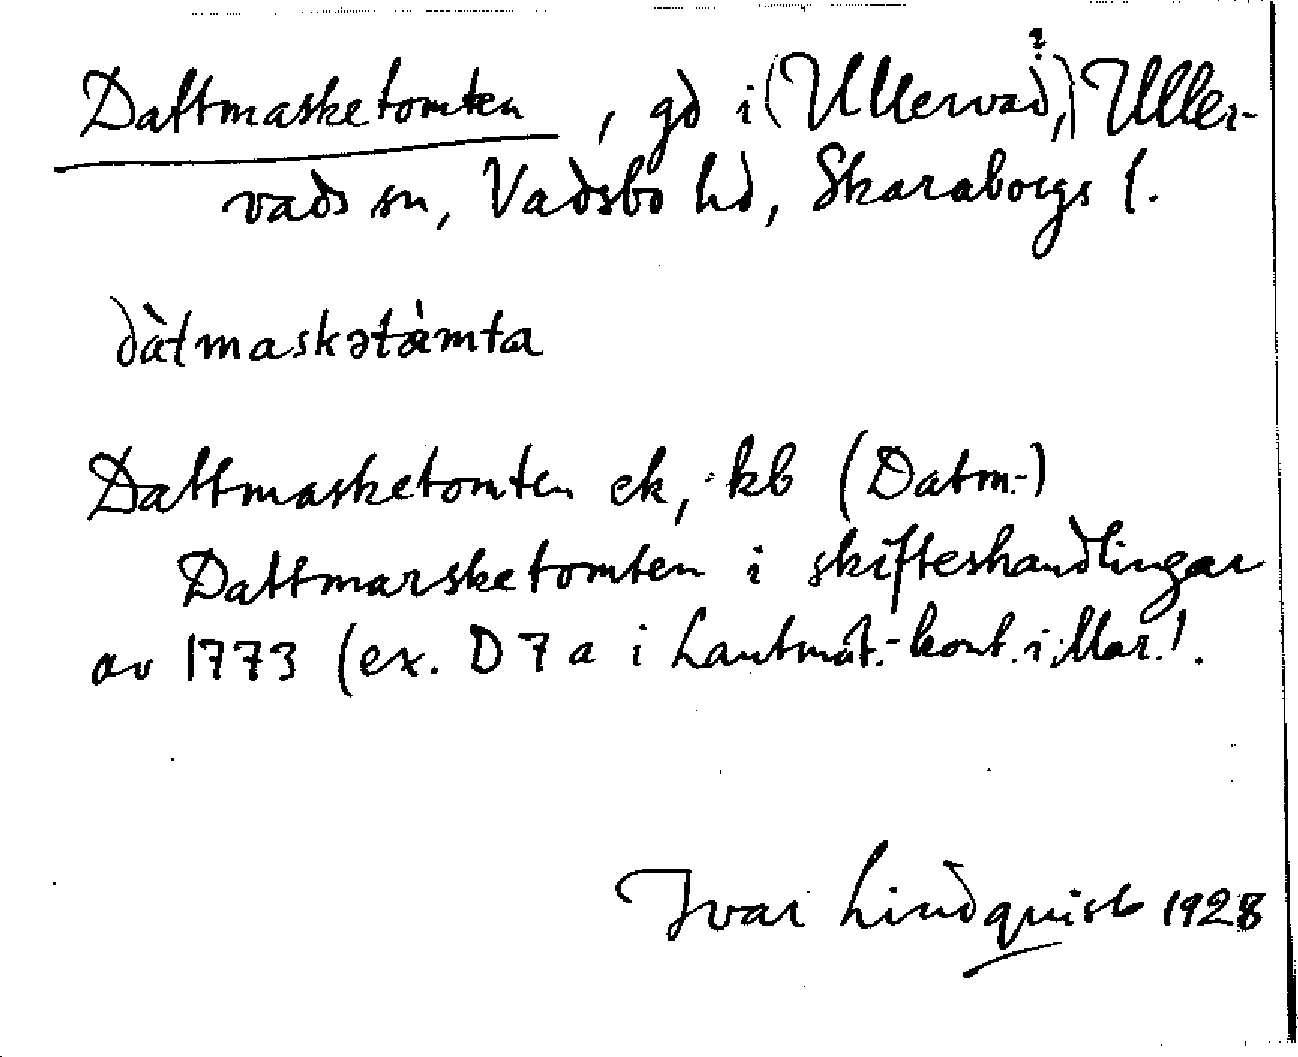 Dattmasketomten, gd i (Ullervad,)? Uller-
vads sn, Vadsbo hd, Skaraborgs l.
dàtmaskətàmta
Dattmasketomten ek, kb (Datm-)
Dattmarsketomten i skifteshandlingar
av 1773 (ex. D 7 a i Lantmät.-kont. i Mar.).
Ivar Lindquist 1928